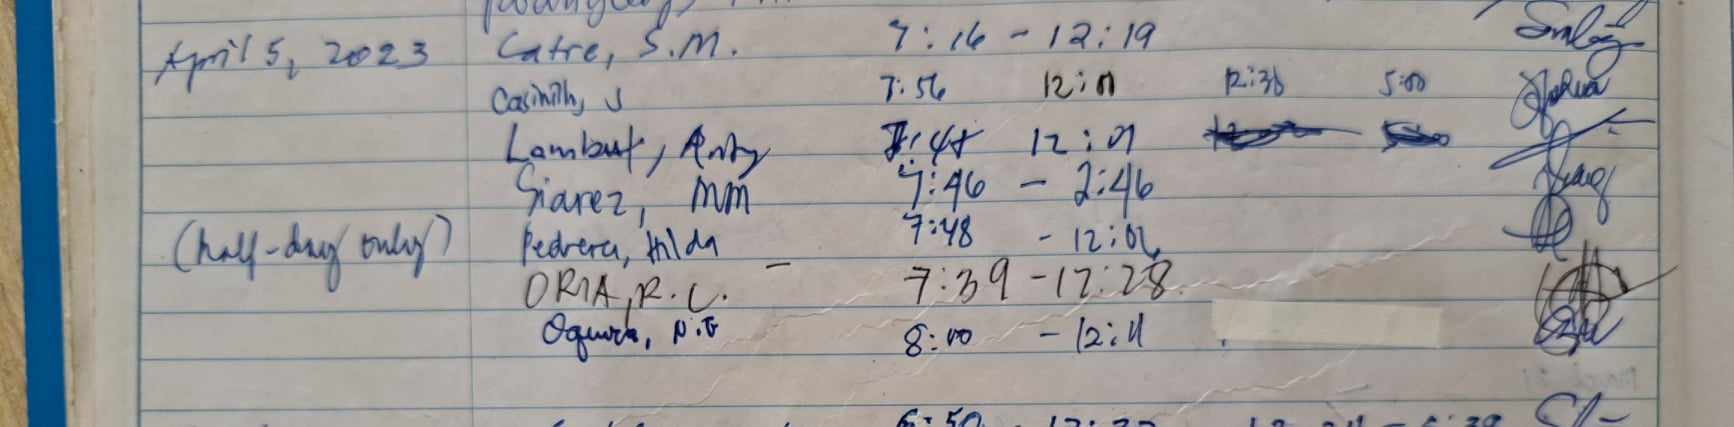 April 5, 2023 Catre, S.M. 7:16 - 12:19
7:56 12:01 12:30 5:00
Lambut, 12:01
Siarez, MM 7:46 - 2:46
(half-day only) Pedrera, Hilda 7:48 - 12:02
ORIA, R.C. - 7:39 - 12:28
N.G 8:00 - 12:11
6:50